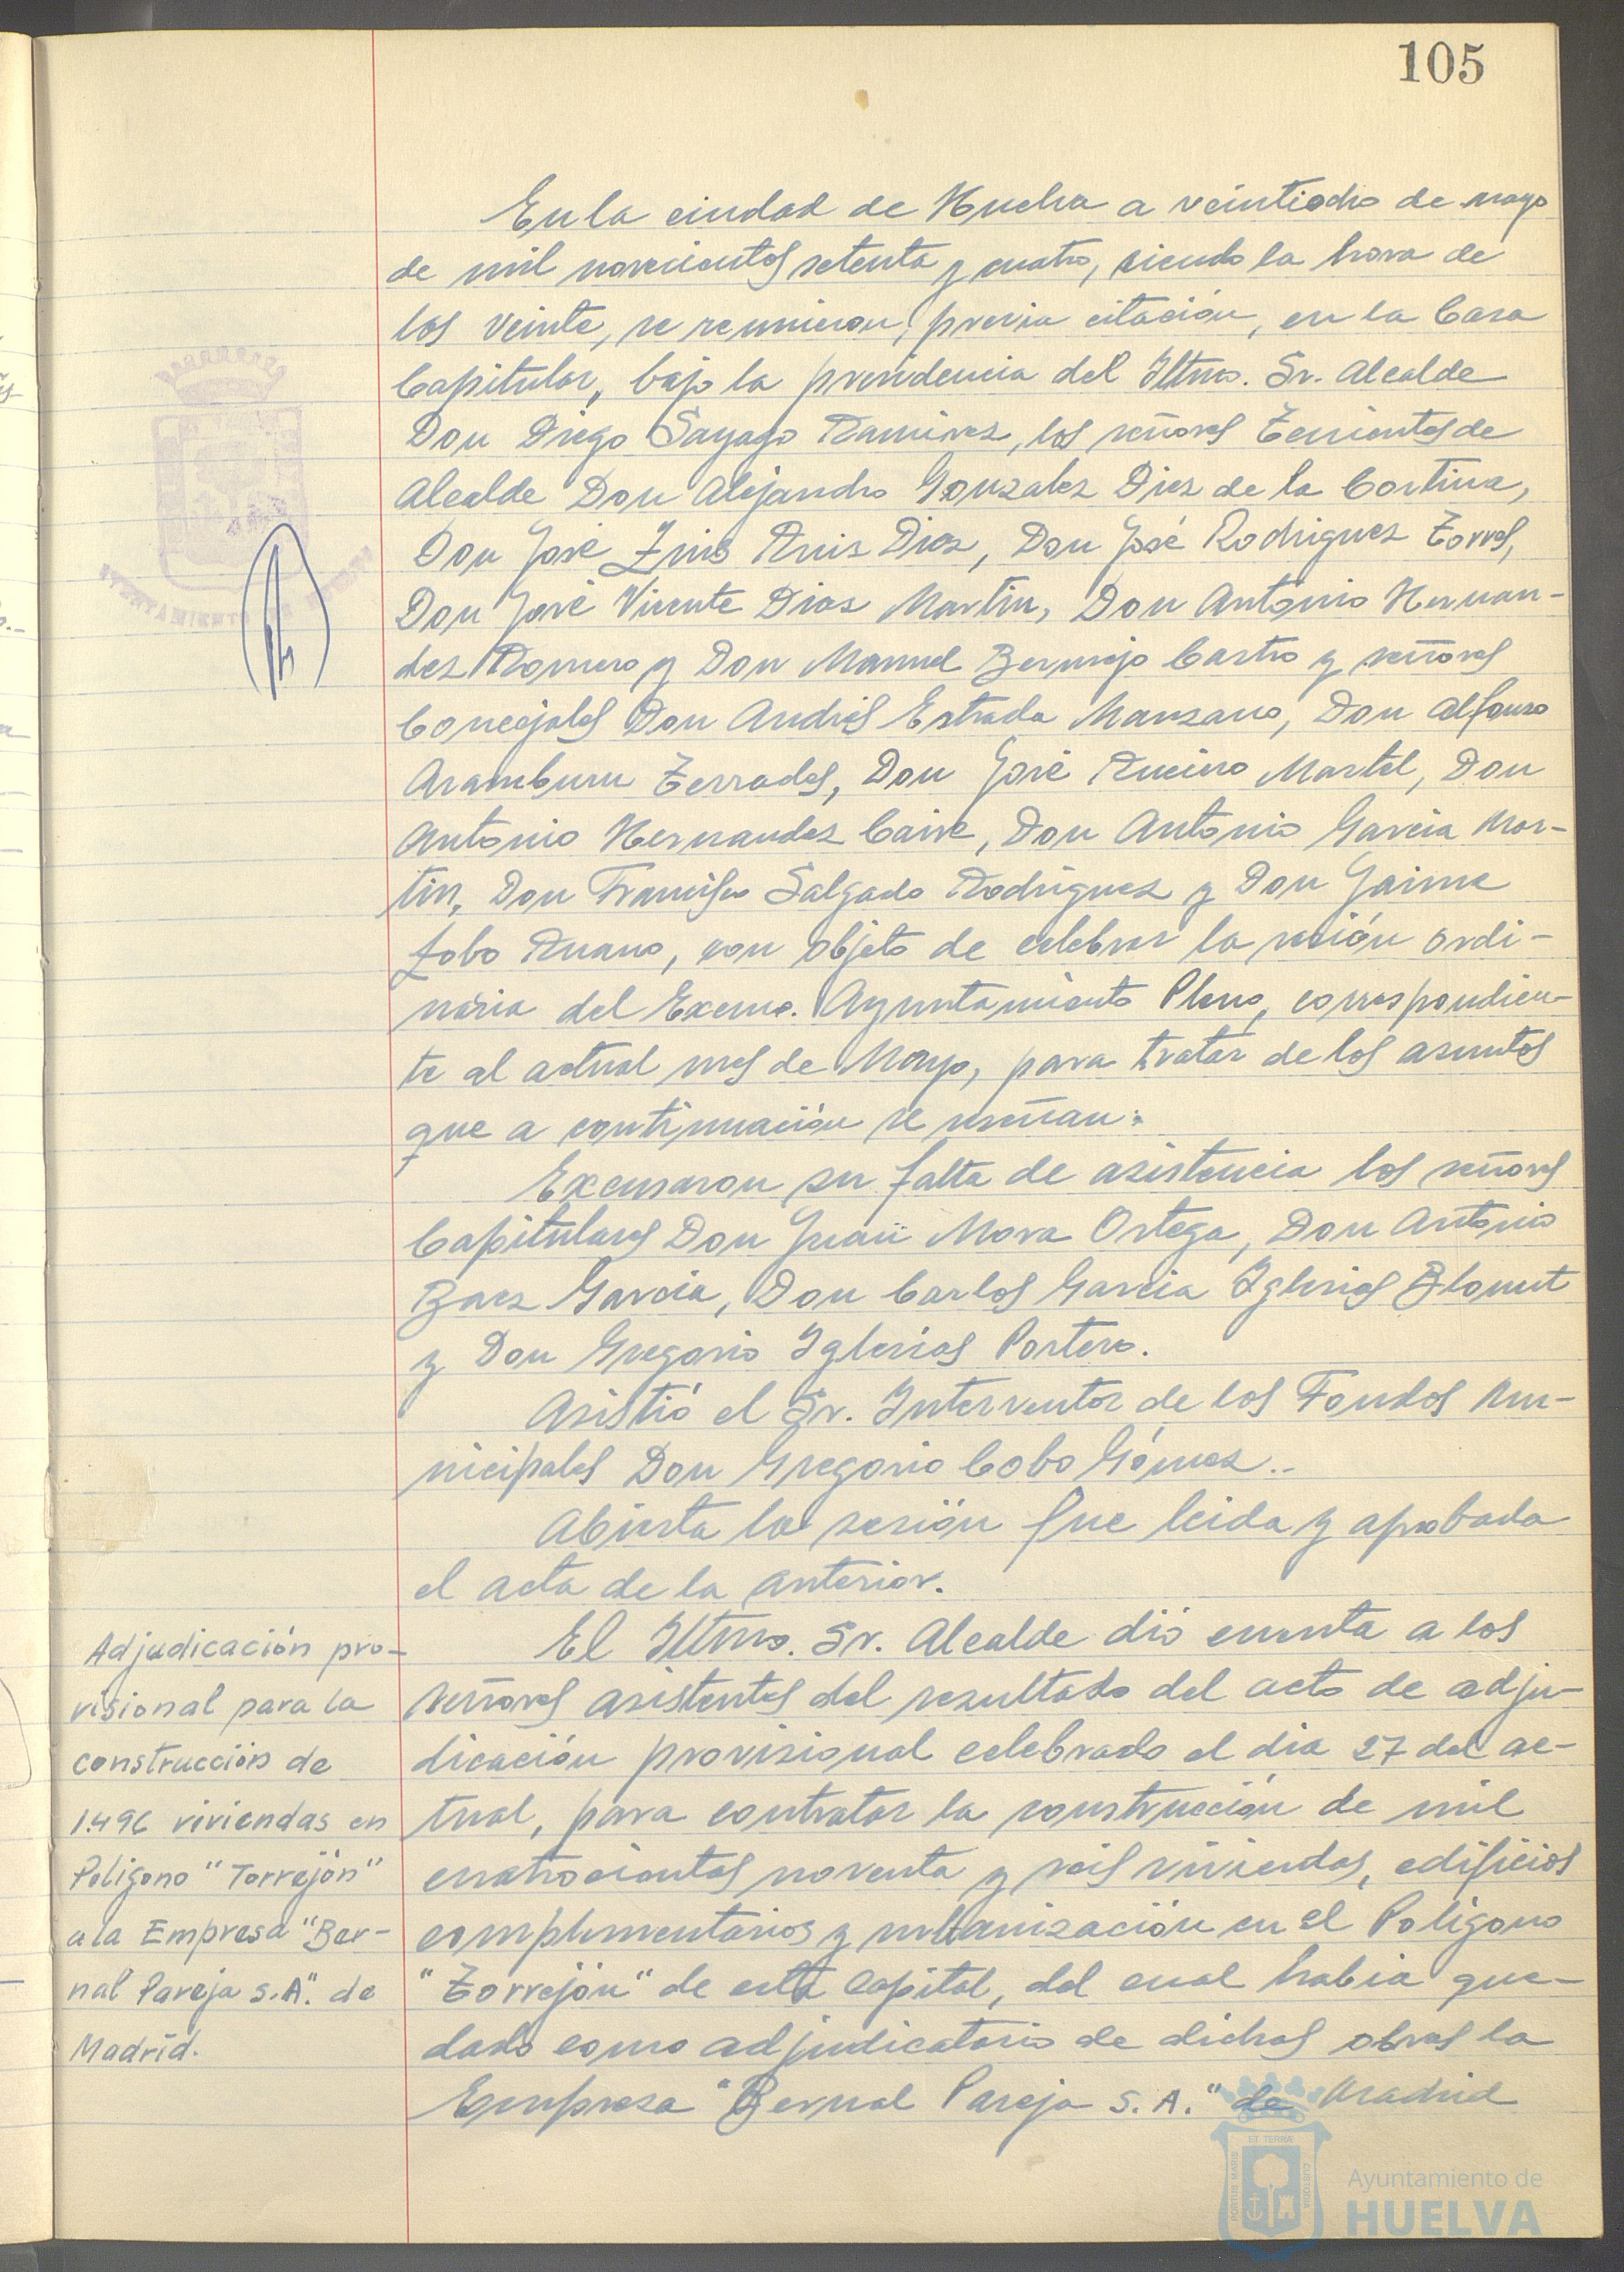 105
En la ciudad de Huelva a veintiocho de mayo
de mil novecientos setenta y cuatro, siendo la hora de
las veinte, se reunieron, previa citación, en la Casa
Capitular, bajo la presidencia del Iltmo. Sr. Alcalde
Don Diego Sayago Ramirez, los señores Tenientes de
Alcalde Don Alejandro Gonzalez Diez de la Cortina,
Don José Luis Ruiz Diaz, Don José Rodriguez Torres,
Don José Vicente Diaz Martin, Don Antonio Hernan-
dez Romero y Don Manuel Bermejo Castro y señores
Concejales Don Andrés Estrada Manzano, Don Alfonso
Aramburu Terrades, Don José Rucino Martel, Don
Antonio Hernandez Caire, Don Antonio Garcia Mar-
tin, Don Francisco Salgado Rodriguez y Don Jaime
Lobo Ruano, con objeto de celebrar la sesión ordi-
naria del Excmo. Ayuntamiento Pleno, correspondien-
te al actual mes de Mayo, para tratar de los asuntos
que a continuación se reseñan:
Excusaron su falta de asistencia los señores
Capitulares Don Juan Mora Ortega, Don Antonio
Baez Garcia, Don Carlos Garcia Iglesias
y Don Gregorio Iglesias Portero.
Asistió el Sr. Interventor de los Fondos Mu-
nicipales Don Gregorio Cobo Gómez..
Abierta la sesión fue leida y aprobada
el acta de la anterior.
Adjudicación pro-
visional para la
construcción de
1.496 viviendas en
Poligono "Torrejón"
a la Empresa "Ber-
nal Pareja S.A." de
Madrid.
El Iltmo. Sr. Alcalde dió cuenta a los
señores asistentes del resultado del acto de adju-
dicación provisional celebrado el dia 27 del ac-
tual, para contratar la construcción de mil
cuatrocientas noventa y seis viviendas, edificios
complementarios y urbanización en el Poligono
"Torrejón" de esta Capital, del cual habia que-
dado como adjudicatario de dichas obras la
Empresa "Bernal Pareja S.A." de Madrid
AYUNTAMIENTO DE HUELVA
PORTUS MARIS
ET TERRÆ
CUSTODIA
Ayuntamiento de
HUELVA